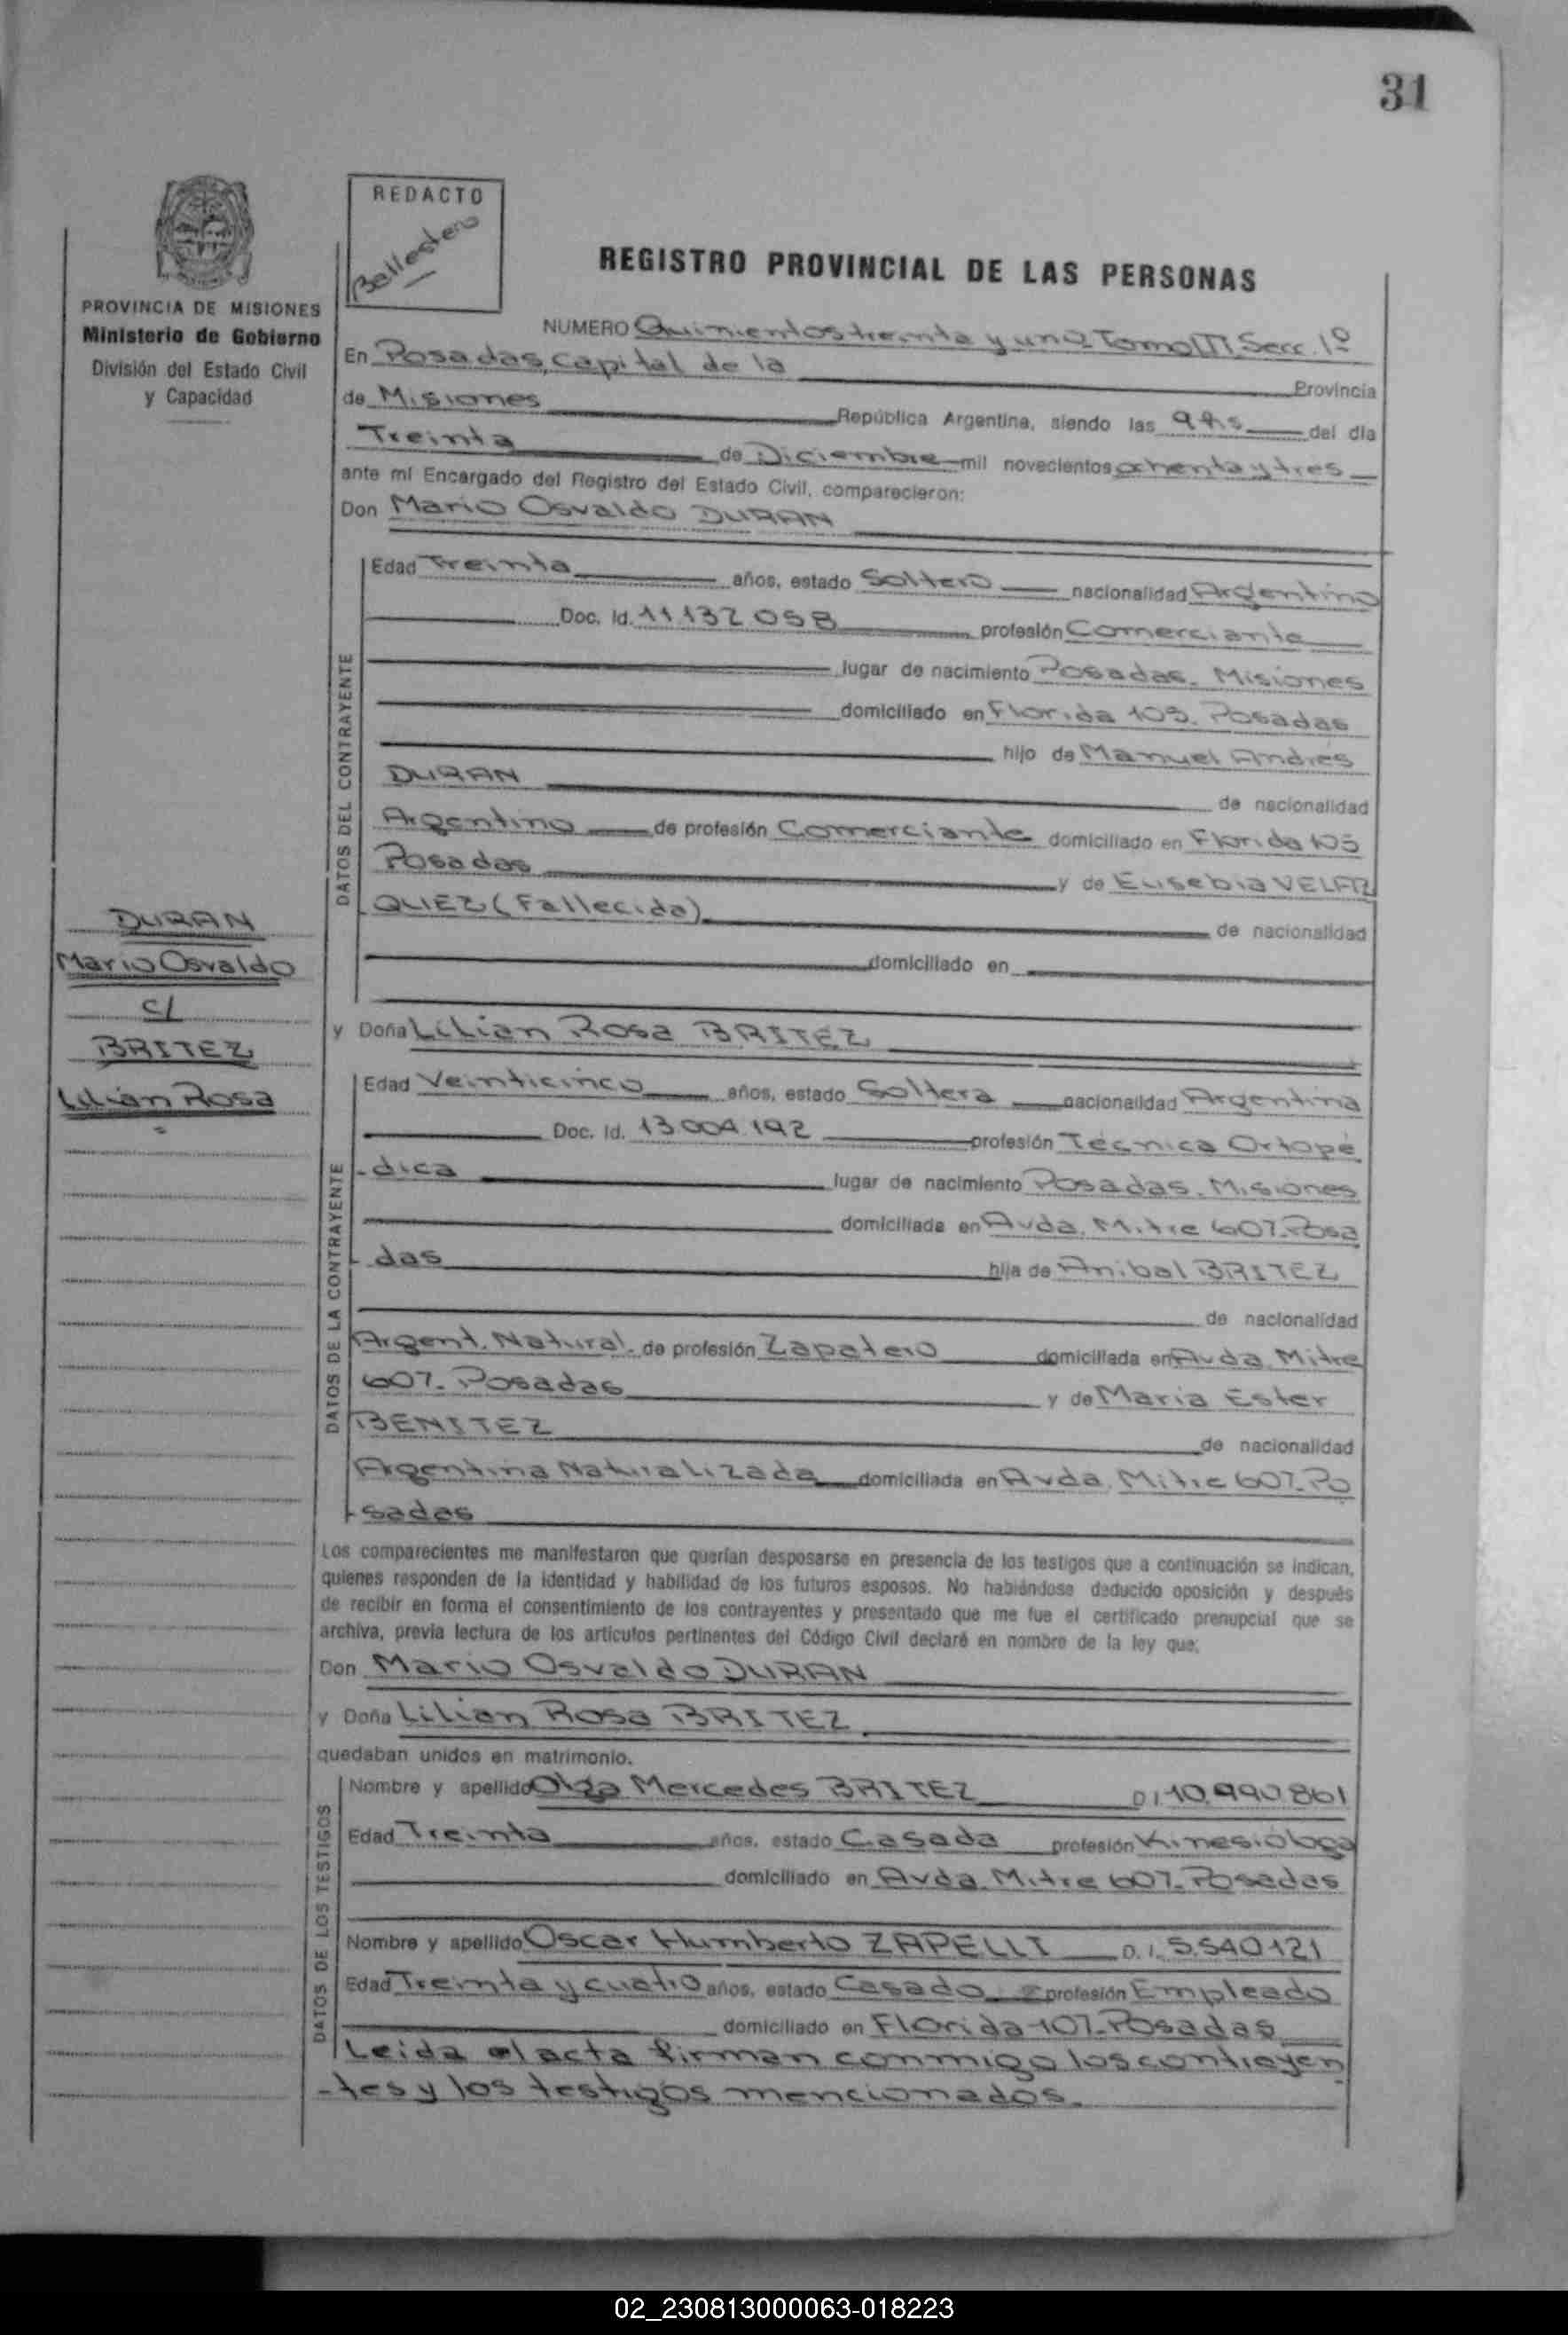 31
REDACTO
Ballestero
REGISTRO PROVINCIAL DE LAS PERSONAS
PROVINCIA DE MISIONES
Ministerio de Gobierno
División del Estado Civil
y Capacidad
NUMERO Quinientos treinta y uno Tomo III Secc. 1º
En Posadas, capital de la Provincia
de Misiones República Argentina, siendo las 9 hs del día
Treinta de Diciembre mil novecientos ochenta y tres
ante mi Encargado del Registro del Estado Civil, comparecieron:
Don Mario Osvaldo DURAN
DATOS DEL CONTRAYENTE
Edad Treinta años, estado Soltero nacionalidad Argentino
Doc. Id. 11132058 profesión Comerciante
lugar de nacimiento Posadas. Misiones
domiciliado en Florida 105. Posadas
hijo de Manuel Andrés
DURAN de nacionalidad
Argentino de profesión Comerciante domiciliado en Florida 105
Posadas y de Eusebia VELAZ
QUEZ (Fallecida) de nacionalidad
domiciliado en
DURAN
Mario Osvaldo
c/
BRITEZ
Lilian Rosa
y Doña Lilian Rosa BRITEZ
DATOS DE LA CONTRAYENTE
Edad Veinticinco años, estado Soltera nacionalidad Argentina
Doc. Id. 13004.192 profesión Técnica Ortopé
-dica lugar de nacimiento Posadas. Misiones
domiciliada en Avda. Mitre 607. Posa
das hija de Anibal BRITEZ
de nacionalidad
Argent. Natural. de profesión Zapatero domiciliada en Avda Mitre
607. Posadas y de Maria Ester
BENITEZ de nacionalidad
Argentina Naturalizada domiciliada en Avda. Mitre 607. Po
sadas
Los comparecientes me manifestaron que querían desposarse en presencia de los testigos que a continuación se indican,
quienes responden de la identidad y habilidad de los futuros esposos. No habiéndose deducido oposición y después
de recibir en forma el consentimiento de los contrayentes y presentado que me fue el certificado prenupcial que se
archiva, previa lectura de los artículos pertinentes del Código Civil declaré en nombre de la ley que:
Don Mario Osvaldo DURAN
y Doña Lilian Rosa BRITEZ
quedaban unidos en matrimonio.
DATOS DE LOS TESTIGOS
Nombre y apellido Olga Mercedes BRITEZ D.I 10.990.861
Edad Treinta años, estado Casada profesión Kinesióloga
domiciliado en Avda Mitre 607. Posadas
Nombre y apellido Oscar Humberto ZAPELLI D.I. 5.540121
Edad Treinta y cuatro años, estado Casado profesión Empleado
domiciliado en Florida 107. Posadas
Leida el acta firman conmigo los contrayen
-tes y los testigos mencionados.
02_230813000063-018223